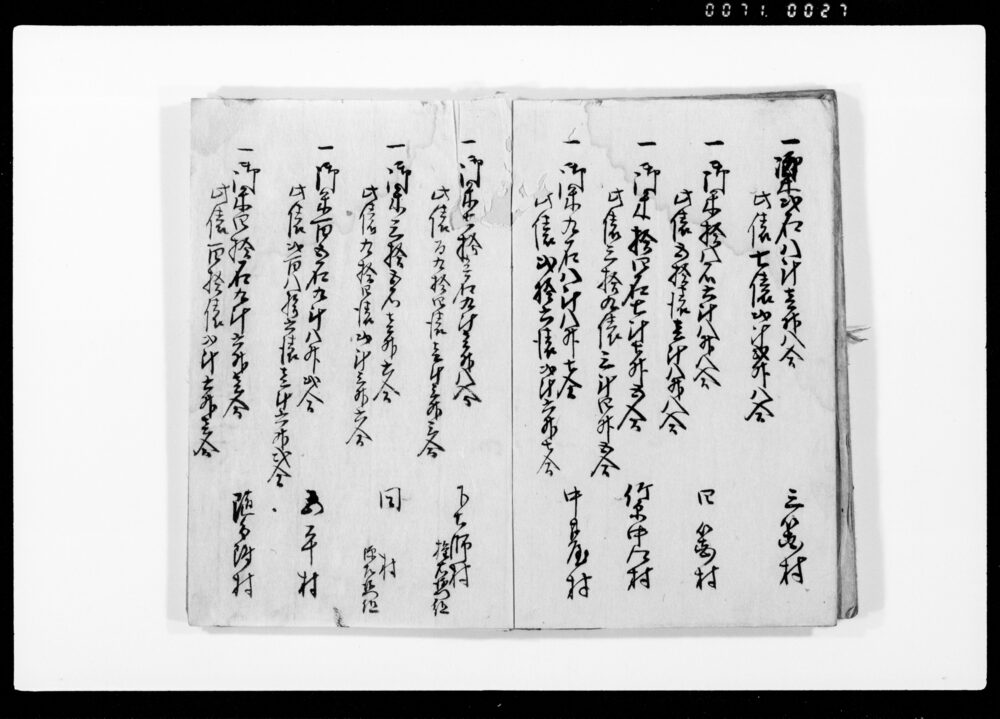 一御米弐石八斗壱升八合
此俵七俵弐斗弐升八合
三 村
一御米拾八石六斗八升八合
此俵五拾俵壱斗八升八合
四 村
一御米拾四石七斗七升五合
此俵三拾九俵三斗四升五合
竹原中江村
一御米九石八斗八升七合
此俵弐拾六俵弐斗六升七合
中 村
一御米七拾壱石九斗壱升八合
此俵百九拾四俵壱斗三升八合
下 師村
権左衛門組
一御米三拾五石壱升六合
此俵九拾四俵弐斗三升六合
同 村
源左衛門組
一御米百五石九斗八升弐合
此俵弐百八拾六俵壱斗六升弐合
五平村
一御米四拾石九斗六升壱合
此俵百拾俵弐斗六升壱合
随分附村
0071. 0027